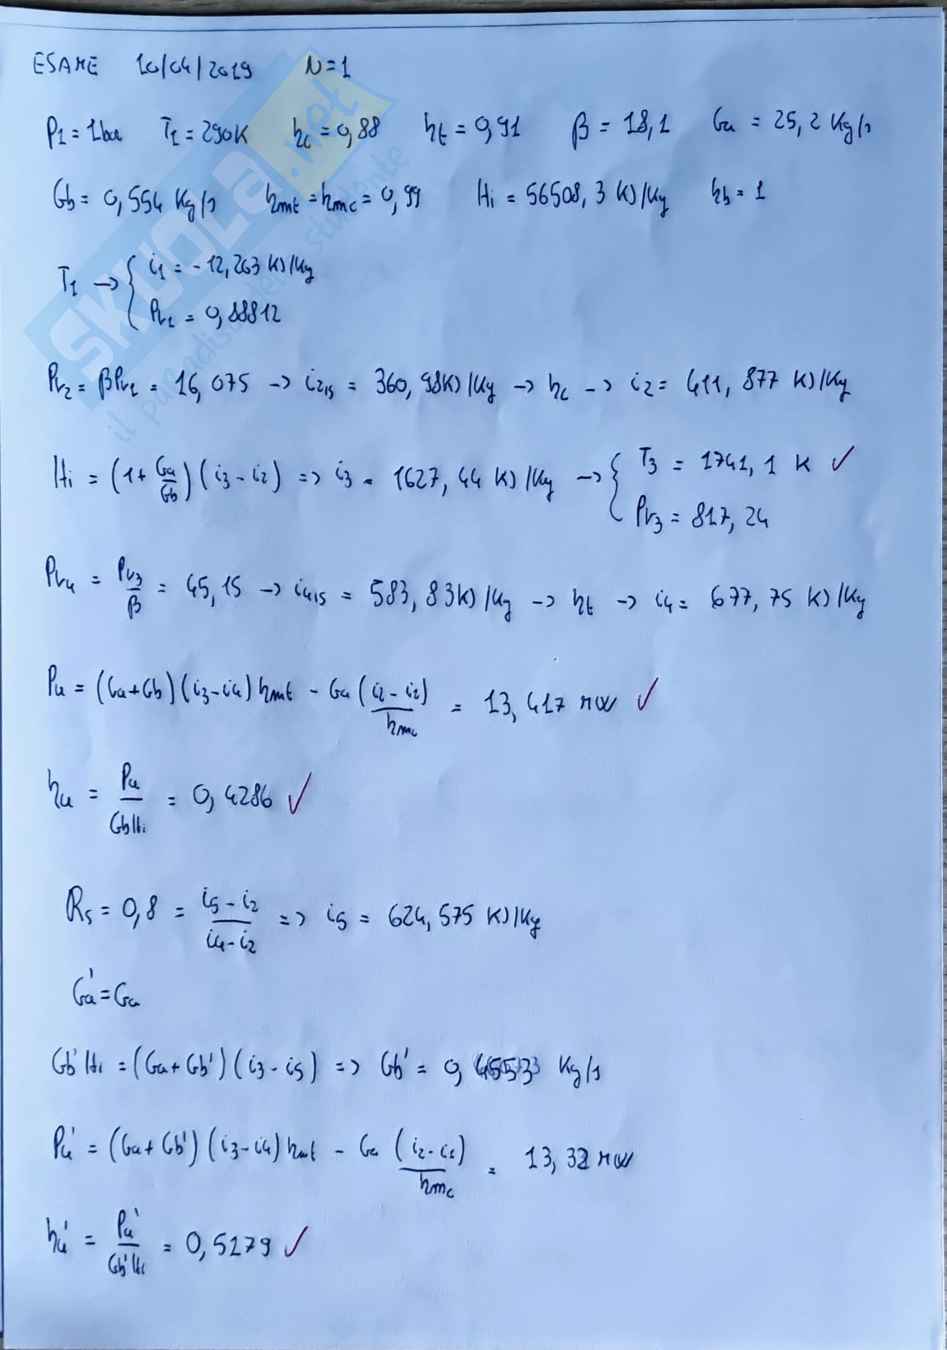 ESAME 10/04/2019 N=1
P1 = 1bar T1 = 290K ηc = 0,88 ηt = 0,91 β = 18,1 Ga = 25,2 Kg/s
Gb = 0,554 Kg/s ηmt = ηmc = 0,99 Hi = 56508,3 KJ/Kg ηb = 1
T1 → { i1 = -12,263 KJ/Kg
Pr1 = 0,88812
Pr2 = βPr1 = 16,075 → i2is = 360,98KJ/Kg → ηc → i2 = 411,877 KJ/Kg
Hi = (1 + Ga/Gb) (i3 - i2) => i3 = 1627,44 KJ/Kg → { T3 = 1741,1 K ✓
Pr3 = 817,24
Pr4 = Pr3/β = 45,15 → i4is = 583,83KJ/Kg → ηt → i4 = 677,75 KJ/Kg
Pu = (Ga+Gb)(i3-i4) ηmt - Ga (i2-i1)/ηmc = 13,417 MW ✓
ηu = Pu/GbHi = 0,4286 ✓
Rs = 0,8 = (i5-i2)/(i4-i2) => i5 = 624,575 KJ/Kg
Ga' = Ga
Gb'Hi = (Ga+Gb')(i3-i5) => Gb' = Kg/s
Pu' = (Ga+Gb')(i3-i4) ηmt - Ga (i2-i1)/ηmc = 13,32 MW
ηu' = Pu'/Gb'Hi = 0,5179 ✓
SKUOLA.net
il paradiso dello studente